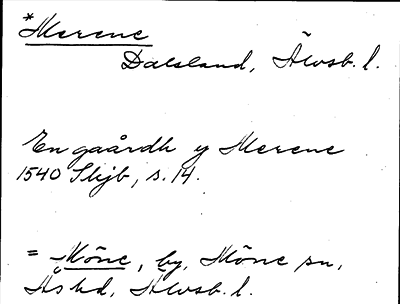 *Merene
Dalsland, Älvsb. l.
En gaårdh y Merene
1540 Slijb, s. 14.
= Möne, by, Möne sn,
Ås hd, Älvsb. l.